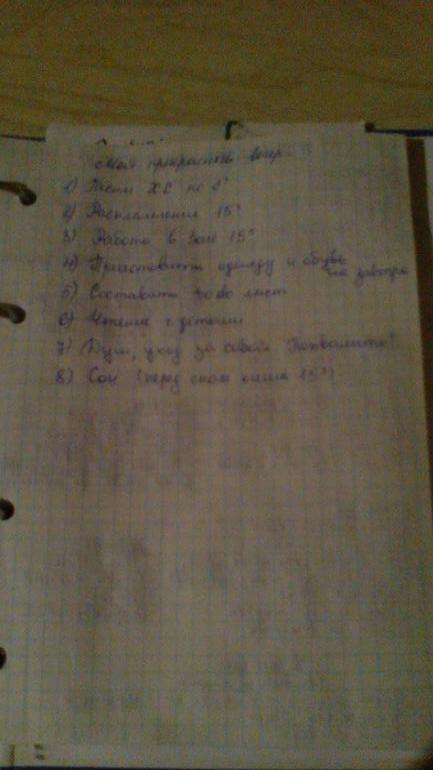 Мой прекрасный вечер
1) Гости ХС по 5'
2) Расхламление 15'
3) Работа в зоне 15'
4) Приготовить одежду и обувь
на завтра
5) Составить to do лист
6) Чтение с детьми
7) Душ, уход за собой. Похвалить!
8) Сон (перед сном книга 15')